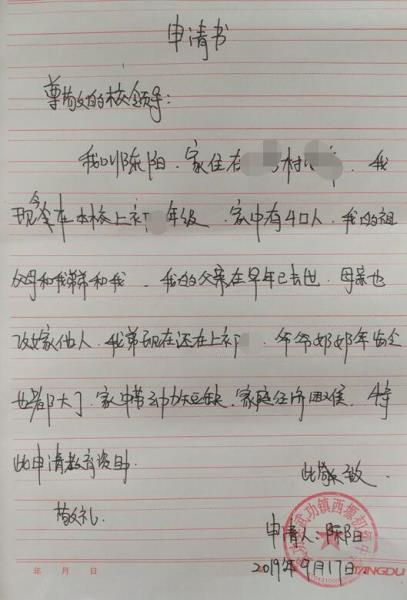 申请书
尊敬的的校领导:
我叫陈阳.家住在 村 .我
现今在本校上初 年级.家中有4口人.我的祖
父母和我弟和我.我的父亲在早年已去世.母亲也
改嫁他人.我弟现在还在上初 .爷爷奶奶年龄
也都大了.家中劳动力短缺.家庭住所困 .特
此申请教育资助.
此致
敬礼.
申请人:陈阳
2019年9月17日
年 月 日
TANGDU